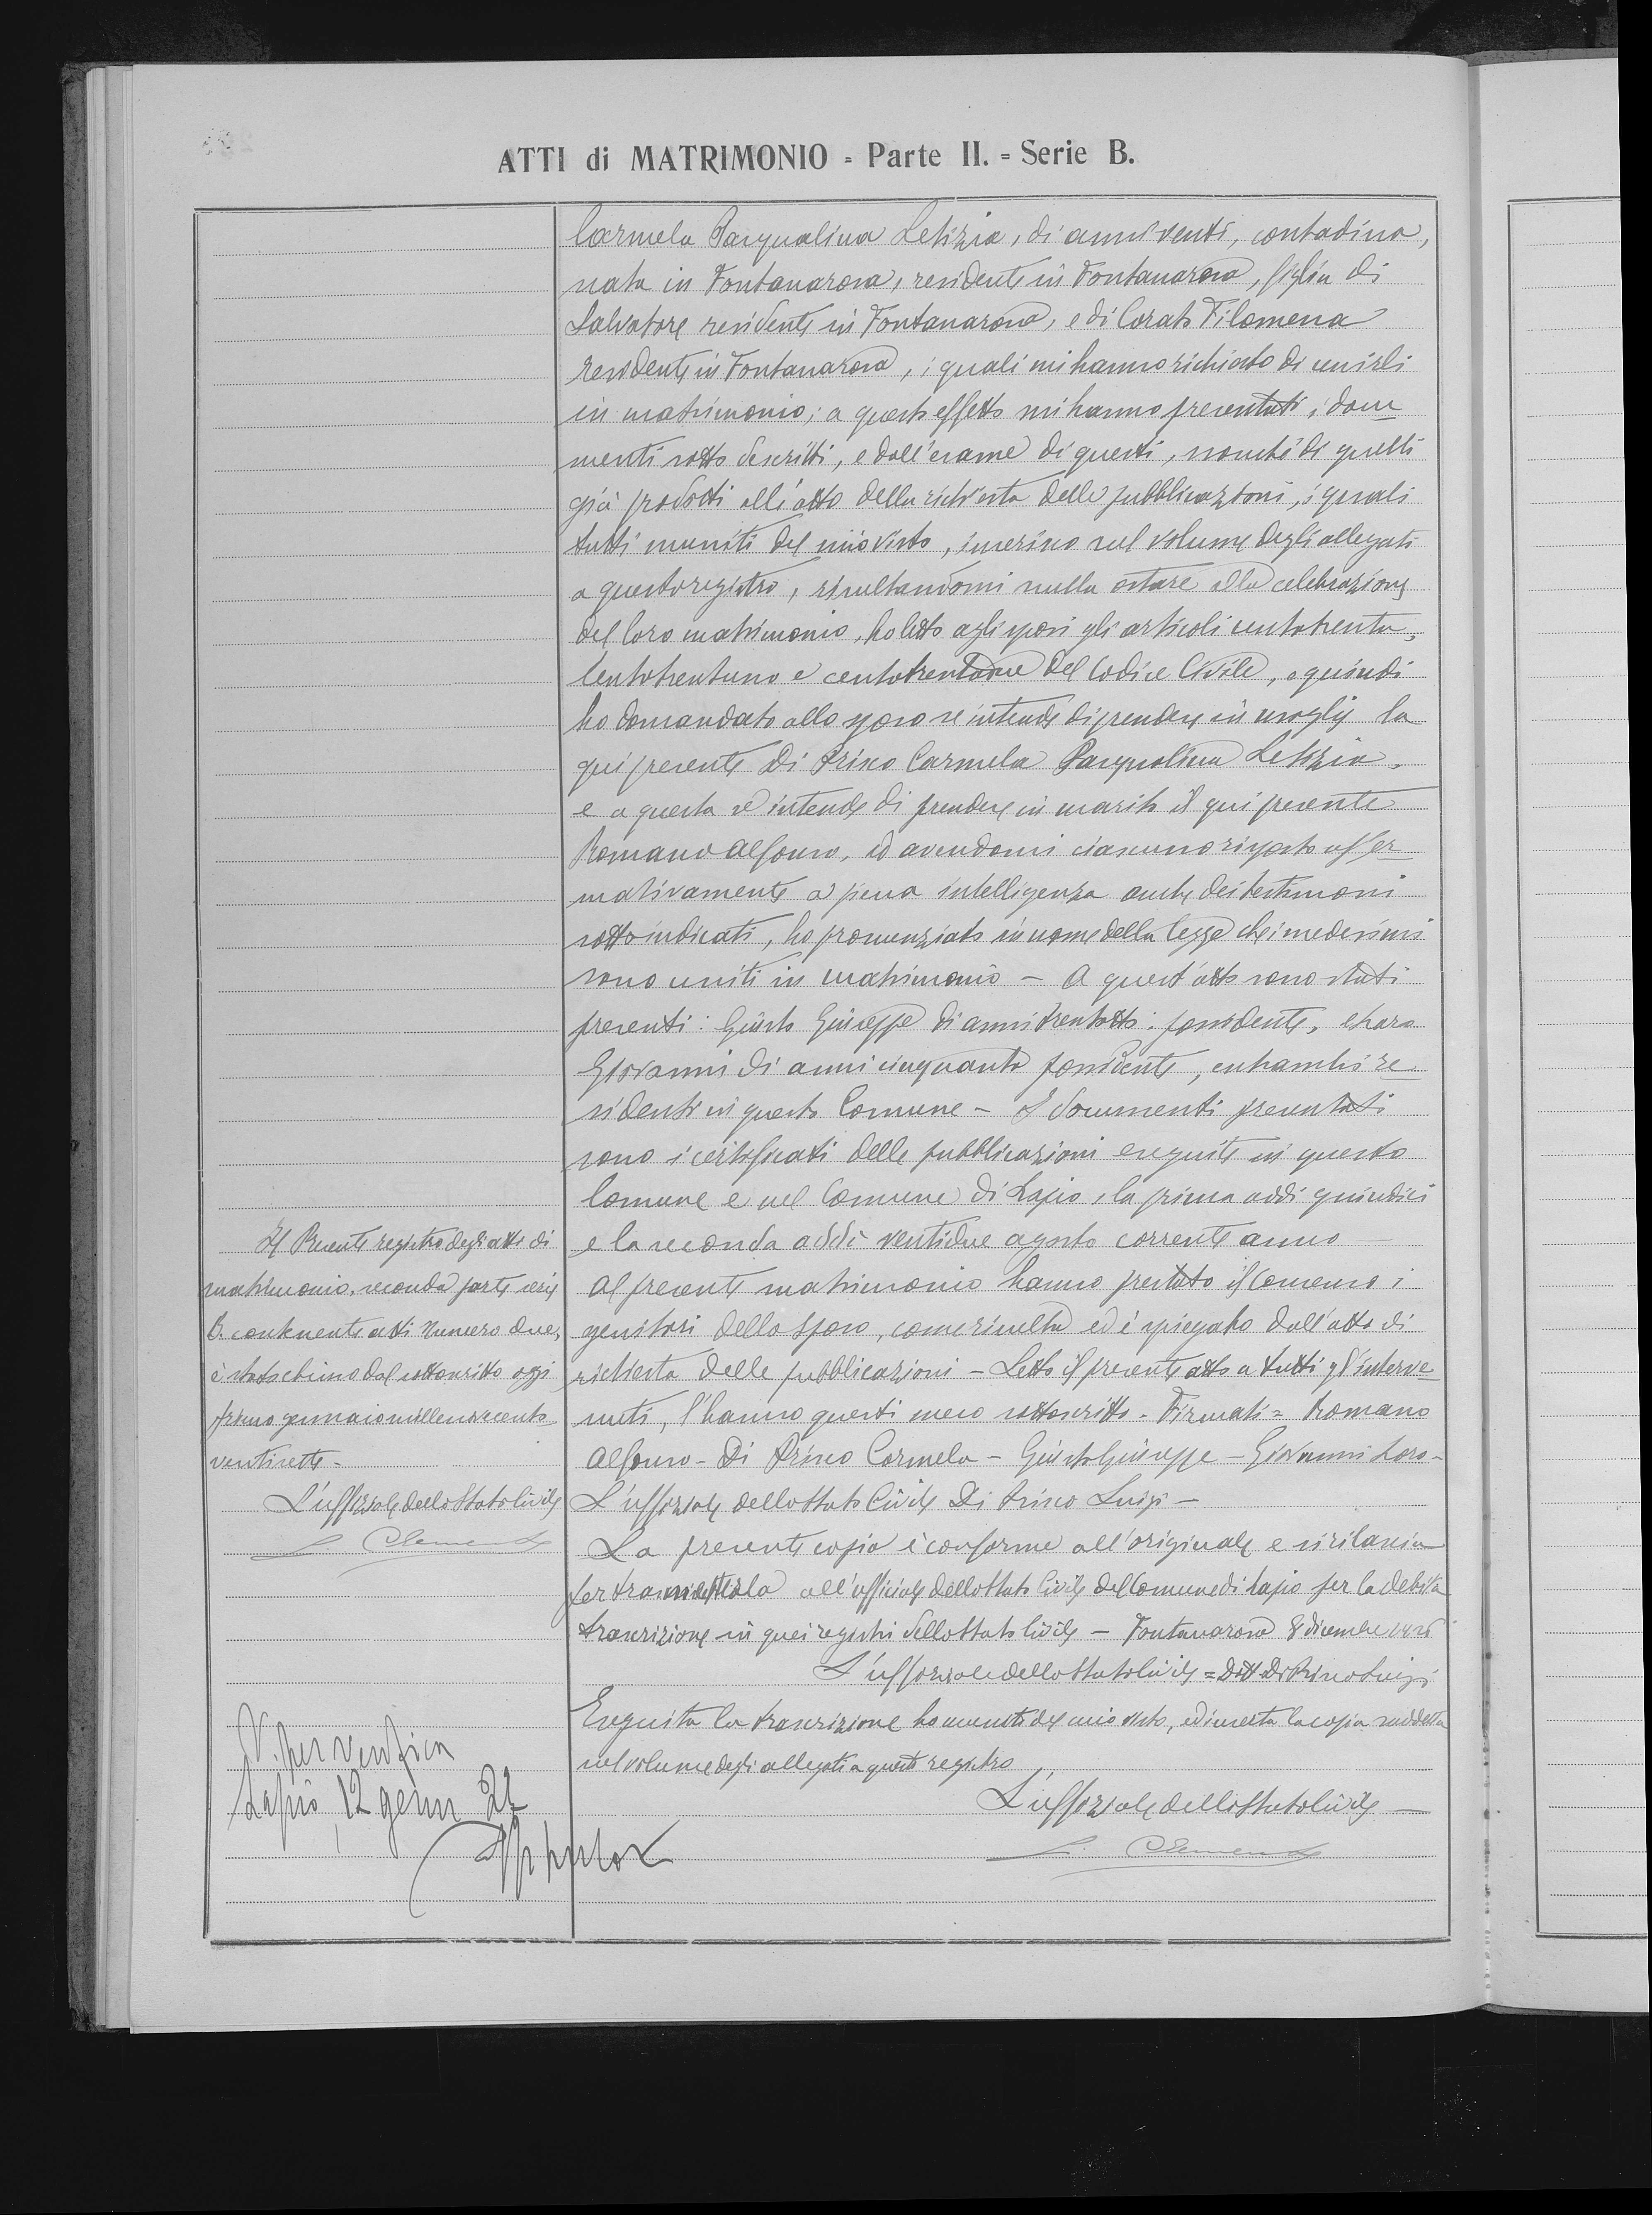 ATTI di MATRIMONIO = Parte II. = Serie B.
Carmela Pasqualina Letizia, di anni venti, contadina,
nata in Fontanarosa, residente in Fontanarosa, figlia di
Salvatore residente in Fontanarosa, e di Corato Filomena
residente in Fontanarosa, i quali mi hanno richiesto di unirli
in matrimonio; a questo effetto mi hanno presentati i docu
menti sotto descritti, e dall'esame di questi, nonchè di quelli
già prodotti all'atto della richiesta delle pubblicazioni, i quali
tutti muniti del mio visto, inserisco nel volume degli allegati
a questo registro, risultandomi nulla ostare alla celebrazione
del loro matrimonio, ho letto agli sposi gli articoli centotrenta,
centotrentuno e centotrentadue del Codice Civile, e quindi
ho domandato allo sposo se intende di prendere in moglie la
qui presente Di Prisco Carmela Pasqualina Letizia,
e a questa se intende di prendere in marito il qui presente
Romano Alfonso, ed avendomi ciascuno risposto affer
mativamente a piena intelligenza anche dei testimoni
sotto indicati, ho pronunziato in nome della legge che i medesimi
sono uniti in matrimonio - A quest'atto sono stati
presenti: Giusto Giuseppe di anni trentotto, possidente, e
Giovanni di anni cinquanta possidente, entrambi re
sidenti in questo Comune - I documenti presentati
sono i certificati delle pubblicazioni eseguite in questo
Comune e nel Comune di Lapio, la prima addì quindici
e la seconda addì ventidue agosto corrente anno -
Al presente matrimonio hanno prestato il consenso i
genitori dello sposo, come risulta ed è spiegato dall'atto di
richiesta delle pubblicazioni - Letto il presente atto a tutti gl'interve
nuti, l'hanno questi meco sottoscritto - Firmati = Romano
Alfonso - Di Prisco Carmela - Giusto Giuseppe - Giovanni
L'uffiziale dello Stato Civile Di Prisco Luigi -
La presente copia è conforme all'originale e si rilascia
per trasmetterla all'ufficiale dello Stato Civile del Comune di Lapio per la debita
trascrizione in quei registri dello Stato Civile - Fontanarosa 8 dicembre 1926
L'uffiziale dello Stato Civile = Dott. Di Prisco Luigi
Eseguita la trascrizione ho munita del mio visto, ed inserta la copia suddetta
nel volume degli allegati a questo registro
L'uffiziale dello Stato Civile -
Clemente
Il Presente registro degli atti di
matrimonio, seconda parte serie
B. contenente atti Numero due,
è stato chiuso dal sottoscritto oggi
primo gennaio millenovecento
ventisette -
L'uffiziale dello Stato Civile
Clemente
V. per verifica
Lapio, 12 genn 27